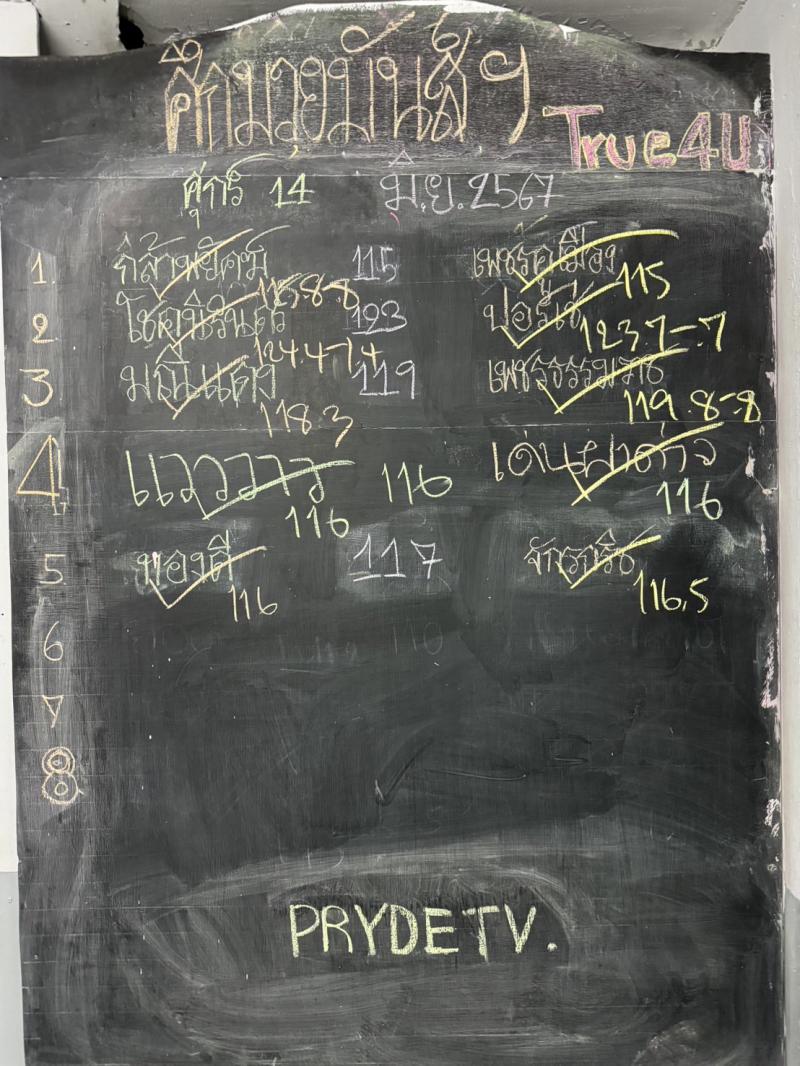 ศึกมวยมันส์ฯ True4U
ศุกร์ 14 มิ.ย. 2567
1. กล้าพยัคฆ์ 115 เพชรเมือง
115.8-.8 115
2 โชคนิรันดร์ 123 ปอร์เช่
124.4-1.4 123.7-.7
3 มณีแดง 119 เพชรธรรมราช
118.3 119.8-.8
4 แวววาว 116 เด่นผาดำ
116 116
5 พองดี 117 จักรกริช
116 116.5
6
7
8
PRYDETV.